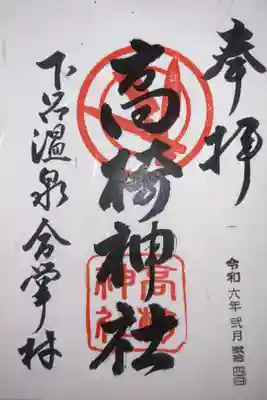 奉拝
令和六年 弐月 四日
高椅神社
高椅神社
下呂温泉合掌村